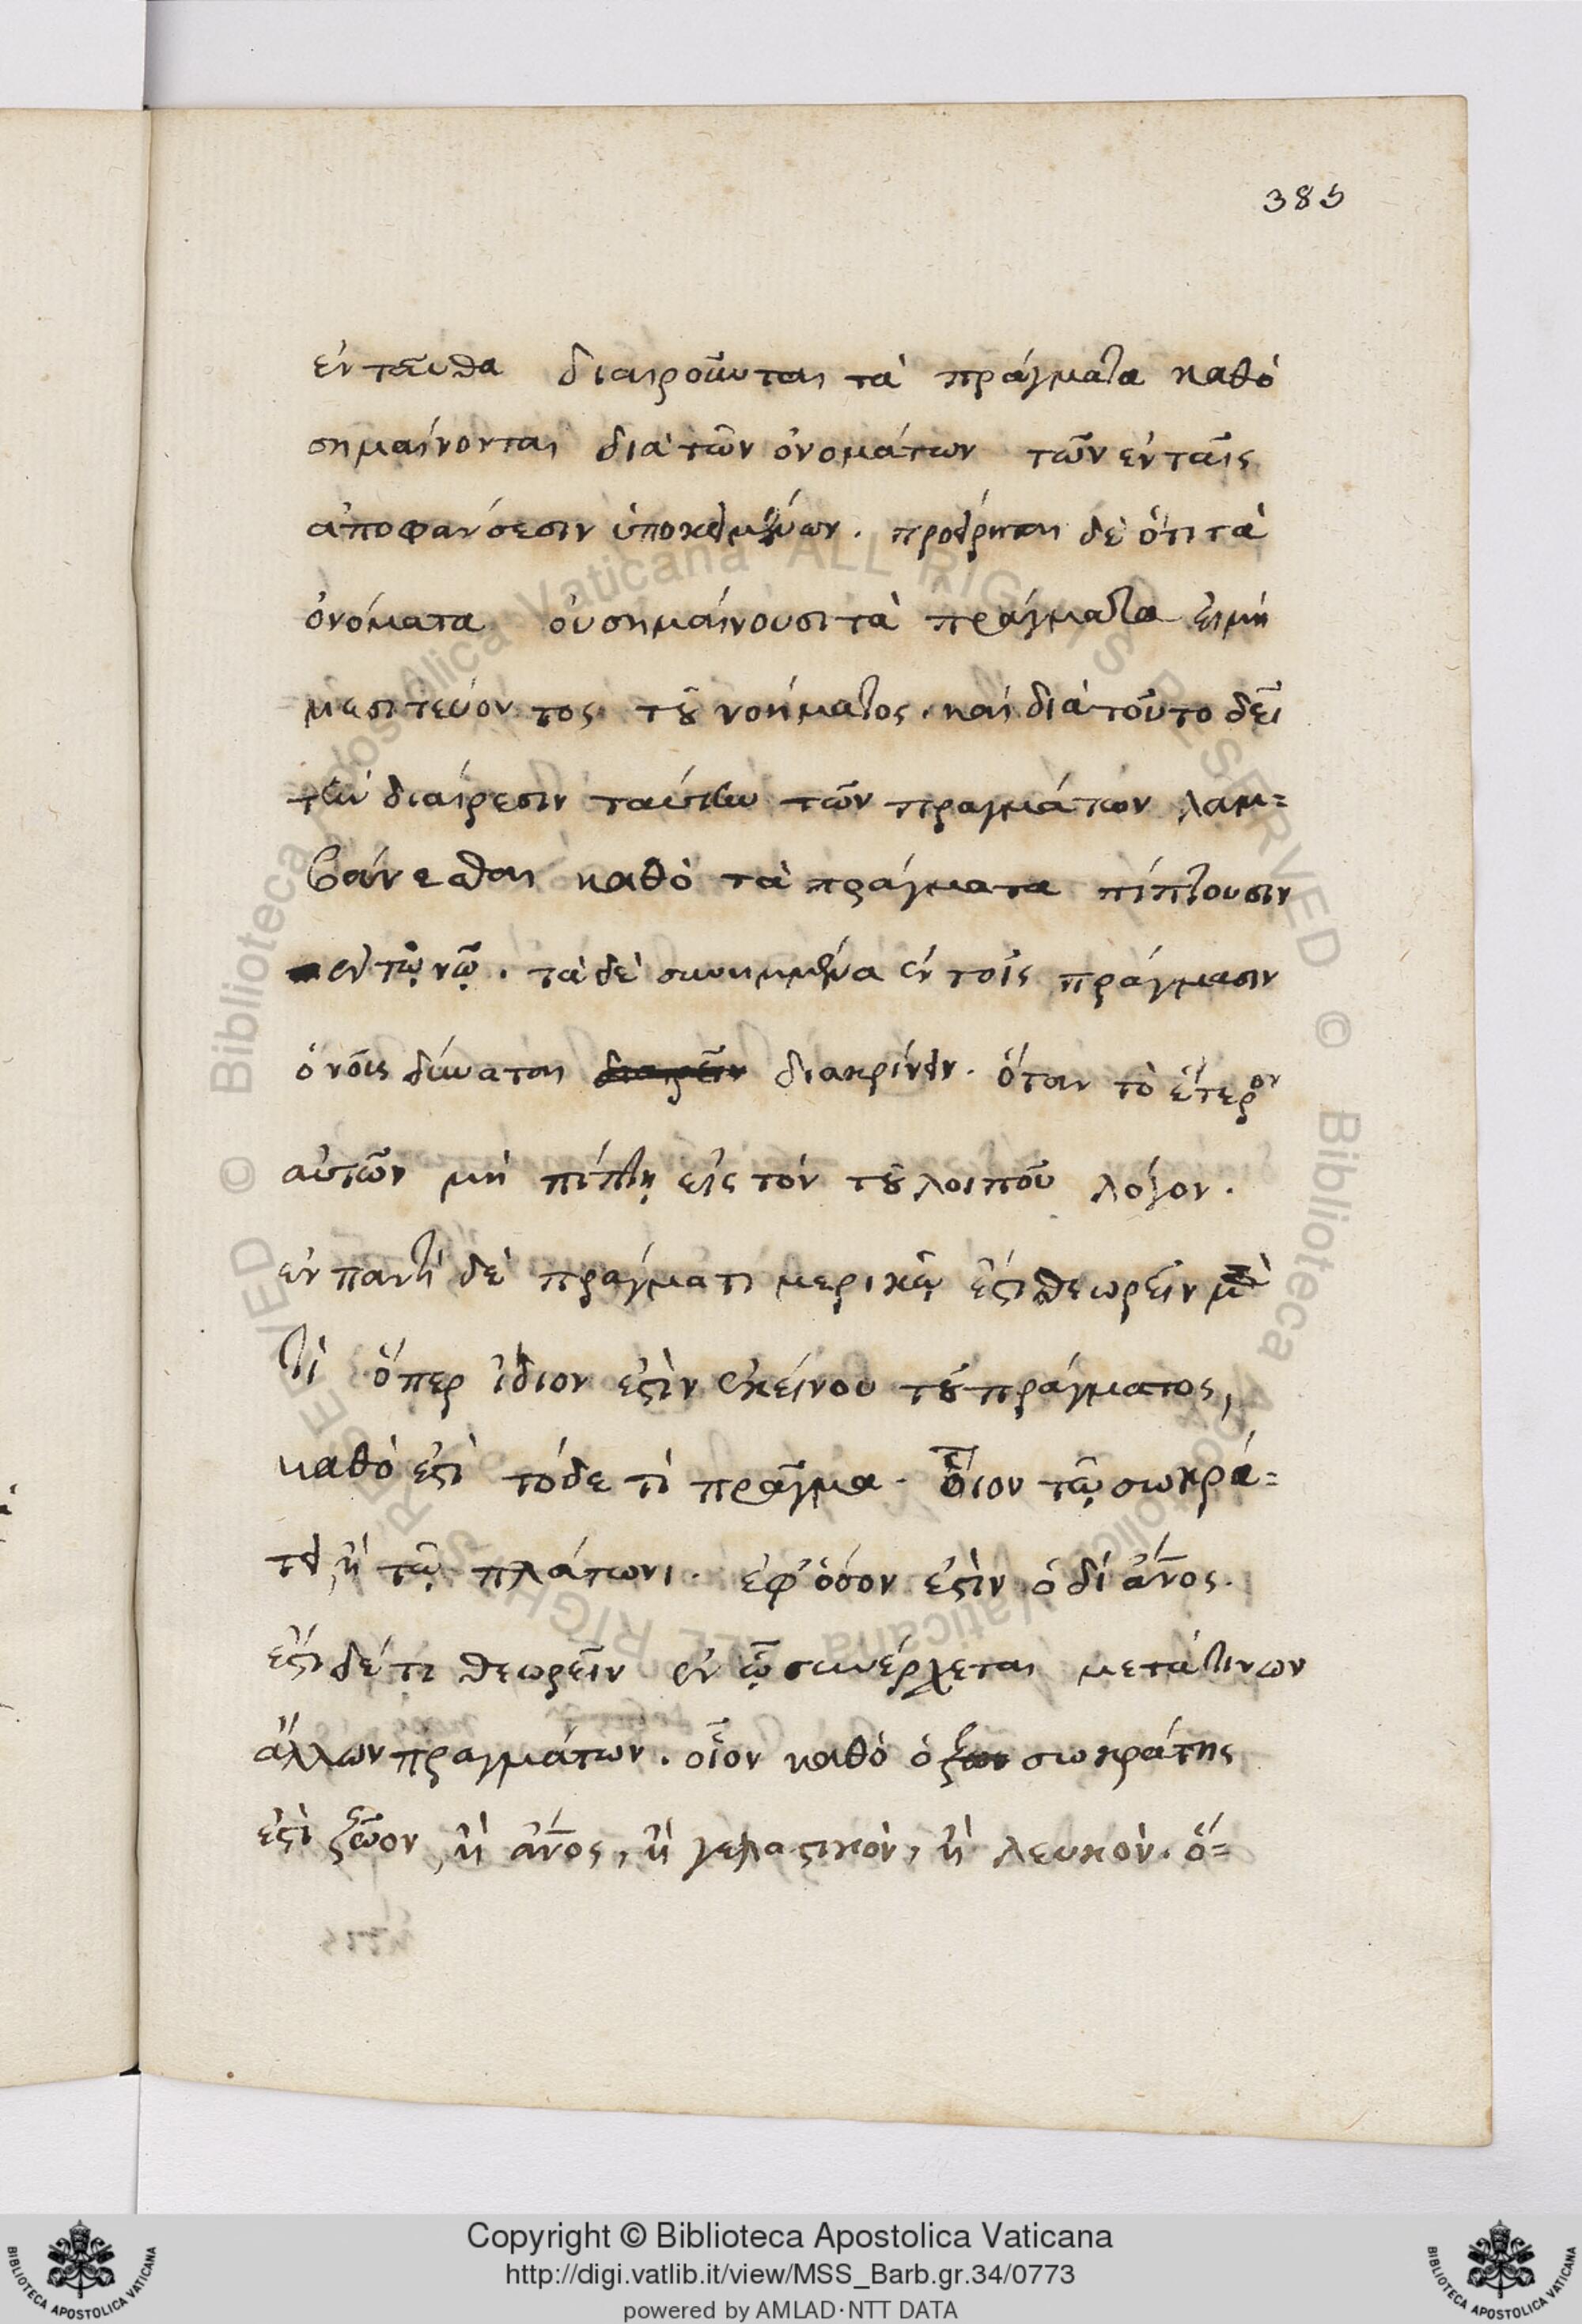 385
ἐνταῦθα διαιροῦνται τὰ πράγματα καθὸ
σημαίνονται διὰ τῶν ὀνομάτων τῶν ἐν ταῖς
ἀποφάνσεσιν ὑποκειμένων. προείρηται δὲ ὅτι τὰ
ὀνόματα οὐ σημαίνουσι τὰ πράγματα εἰμὴ
μεσιτεύοντος τοῦ νοήματος. καὶ διὰ τοῦτο δεῖ
τὴν διαίρεσιν ταύτην τῶν πραγμάτων λαμ=
βάνεσθαι καθὸ τὰ πράγματα πίπτουσιν
ἐν τῷ νῷ. τὰ δὲ συνημμένα ἐν τοῖς πράγμασιν
ὁ νοῦς δύναται διαιρεῖν διακρίνειν. ὅταν τὸ ἕτερον
αὐτῶν μὴ πίπτῃ εἰς τὸν τοῦ λοιποῦ λόγον.
ἐν παντὶ δὲ πράγματι μερικῷ ἐστι θεωρεῖν
τὶ ὅπερ ἴδιον ἐστὶν ἐκείνου τοῦ πράγματος,
καθὸ ἐστὶ τόδε τὶ πρᾶγμα. οἷον τῷ σωκρά=
τει ἢ τῷ πλάτωνι. ἐφ' ὅσον ἐστὶν ὁδὶ ἄνος.
ἔστι δέ τι θεωρεῖν ἐν ᾧ συνέρχεται μετά τινων
ἄλλων πραγμάτων. οἷον καθὸ ὁ σωκράτης
ἐστὶ ζῶον, ἢ ἄνος, ἢ γελαστικὸν, ἢ λευκὸν. ὅ=
Copyright © Biblioteca Apostolica Vaticana
http://digi.vatlib.it/view/MSS_Barb.gr.34/0773
powered by AMLAD·NTT DATA